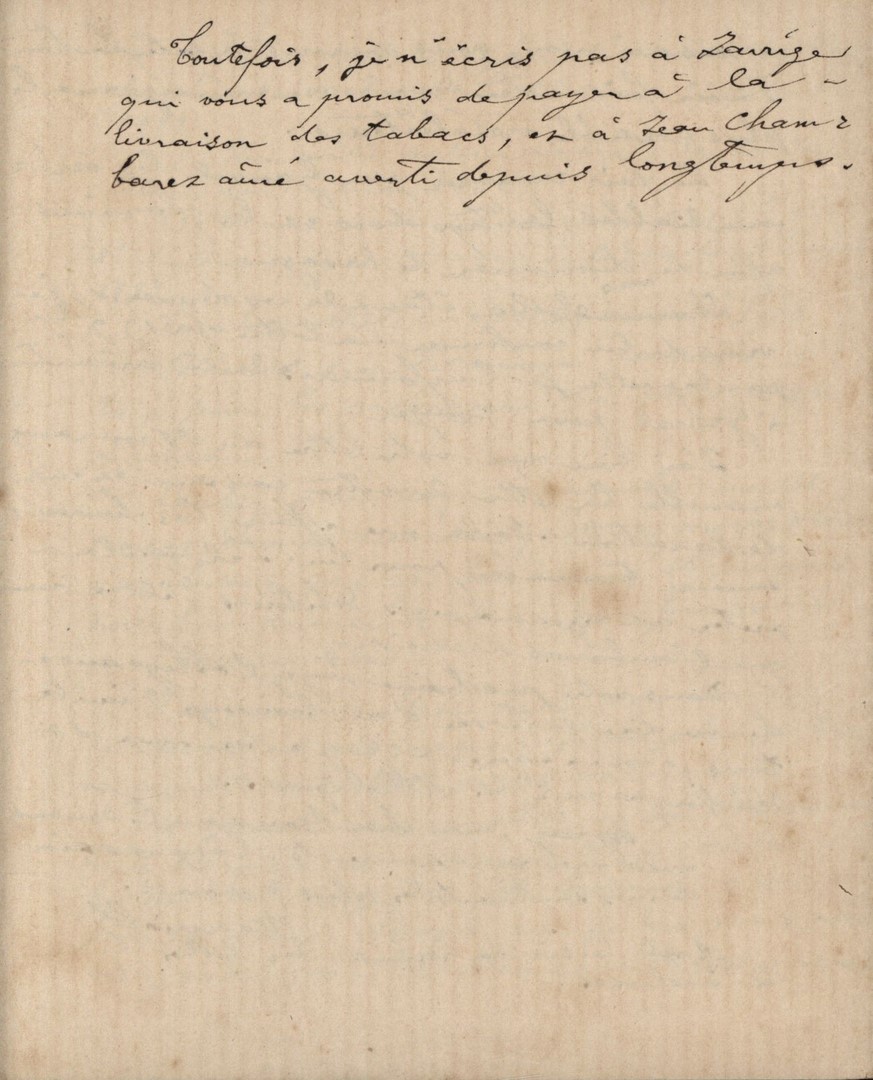 Toutefois, je n'écris pas à Larrige
qui vous a promis de payer à la -
livraison des tabacs, et à Jean Cham-
barez aîné averti depuis longtemps.